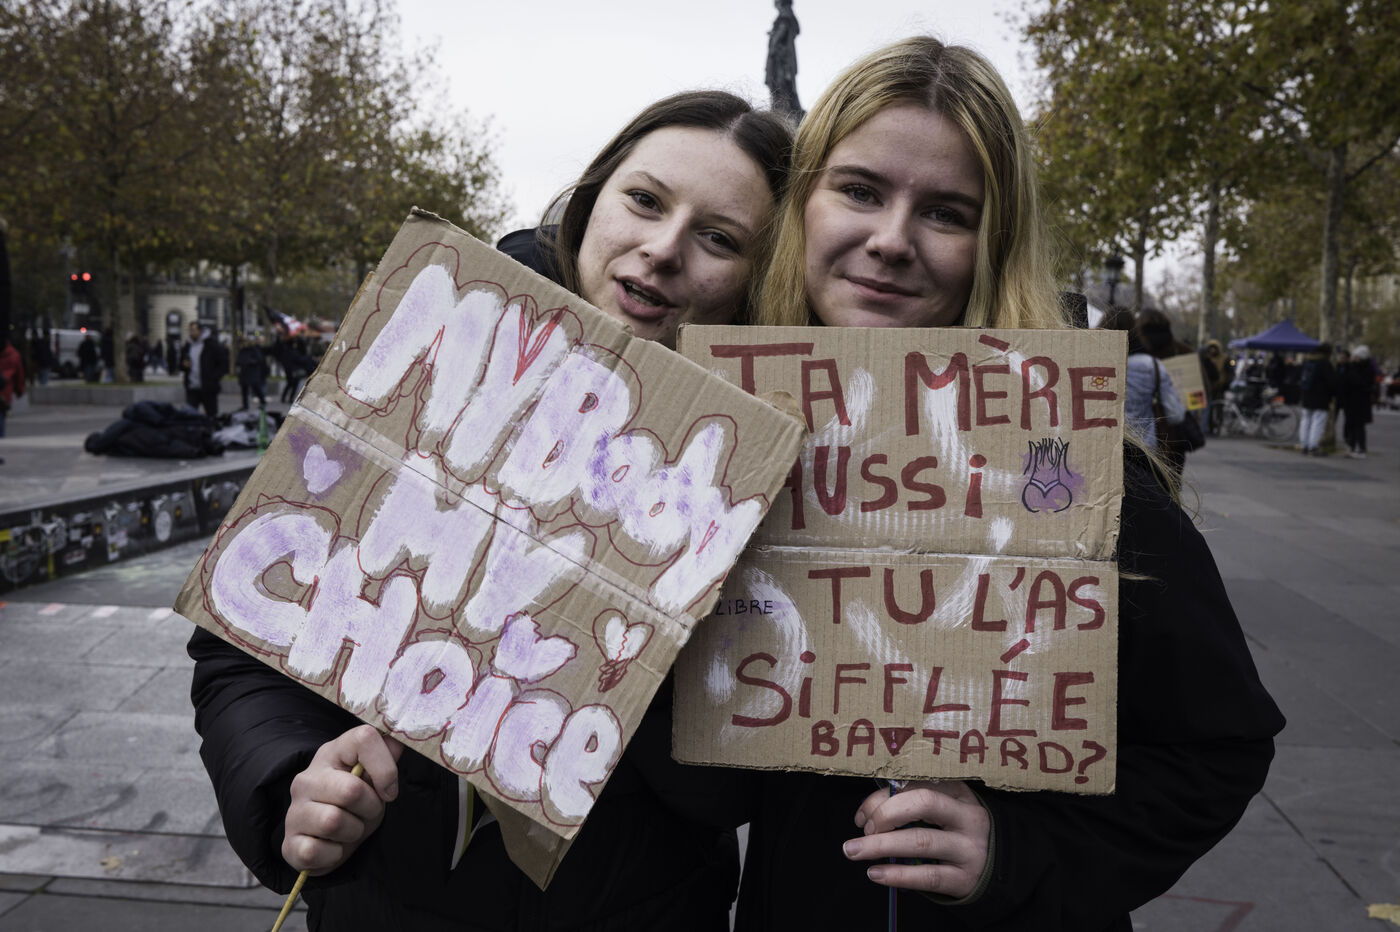 MY Body
MY
CHoice
TA MÈRE
AUSSi
TU L'AS
LiBRE
SiFFLÉE
BATARD?